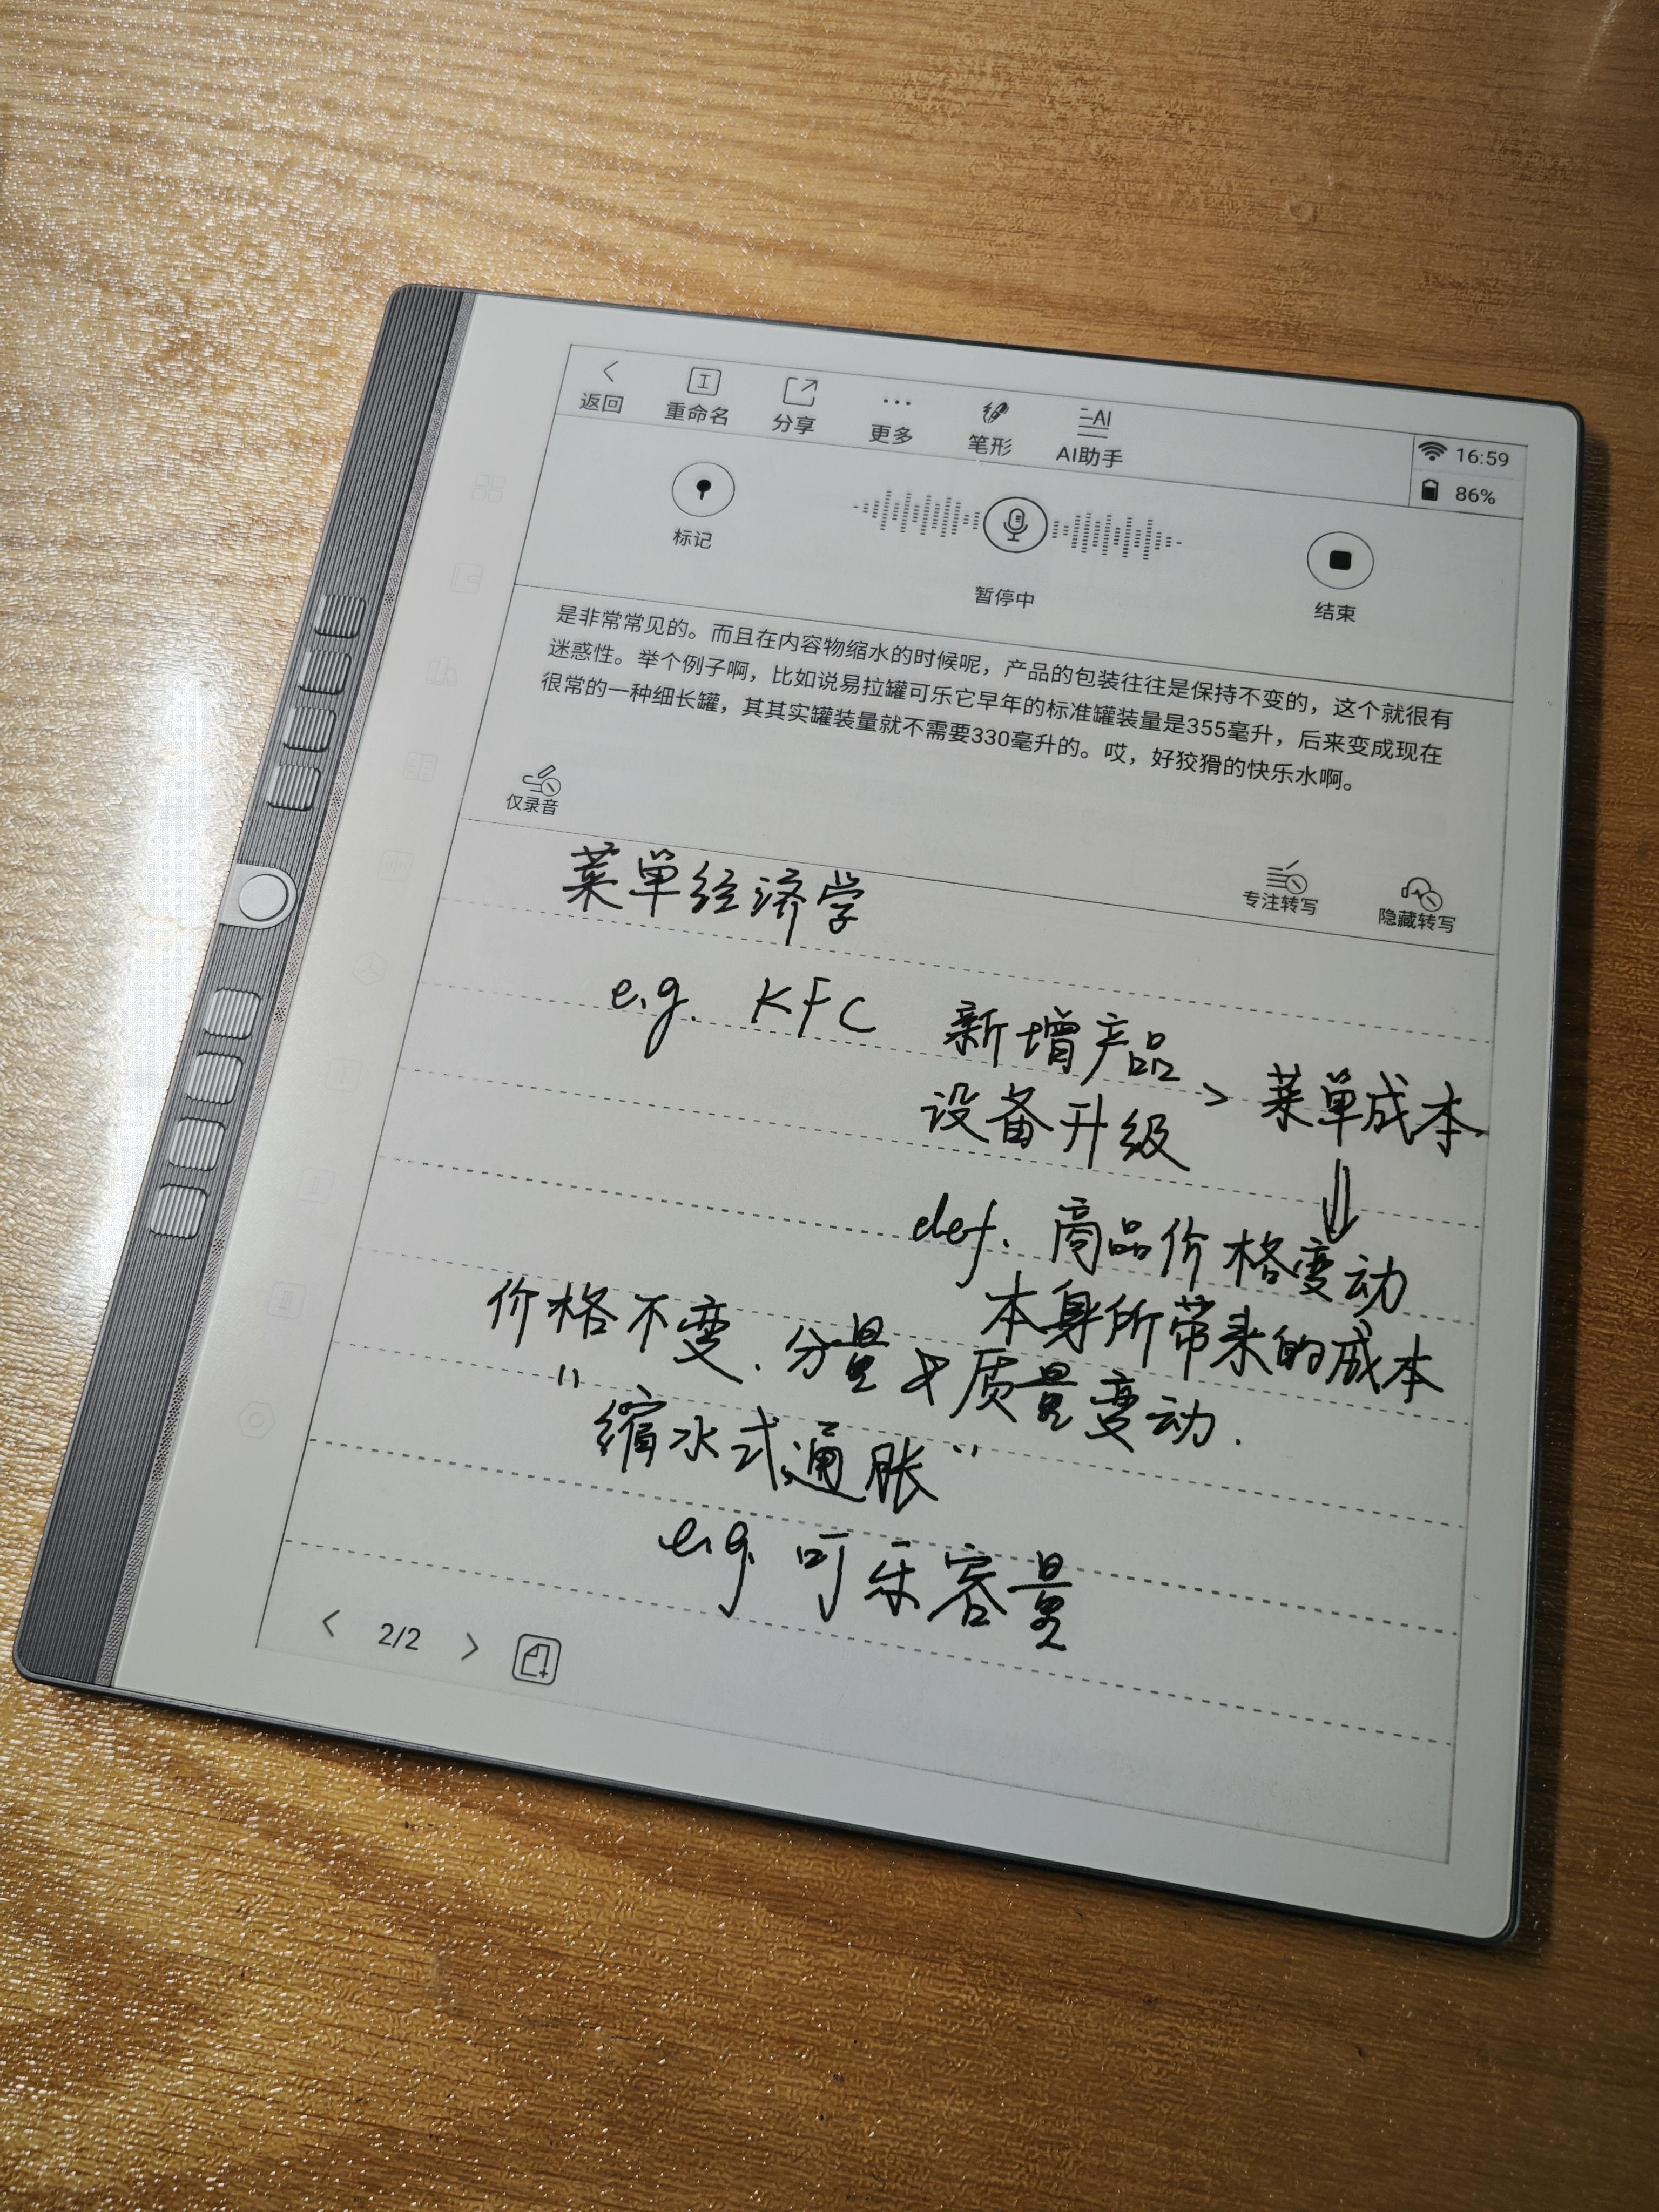 返回 重命名 分享 更多 笔形 AI助手
16:59
86%
标记 暂停中 结束
是非常常见的。而且在内容物缩水的时候呢，产品的包装往往是保持不变的，这个就很有
迷惑性。举个例子啊，比如说易拉罐可乐它早年的标准罐装量是355毫升，后来变成现在
很常的一种细长罐，其其实罐装量就不需要330毫升的。哎，好狡猾的快乐水啊。
仅录音 专注转写 隐藏转写
菜单经济学
e.g. KFC 新增产品
设备升级 > 菜单成本
⇓
def. 商品价格变动
本身所带来的成本
价格不变、分量&质量变动.
"缩水式通胀"
e.g. 可乐容量
< 2/2 >